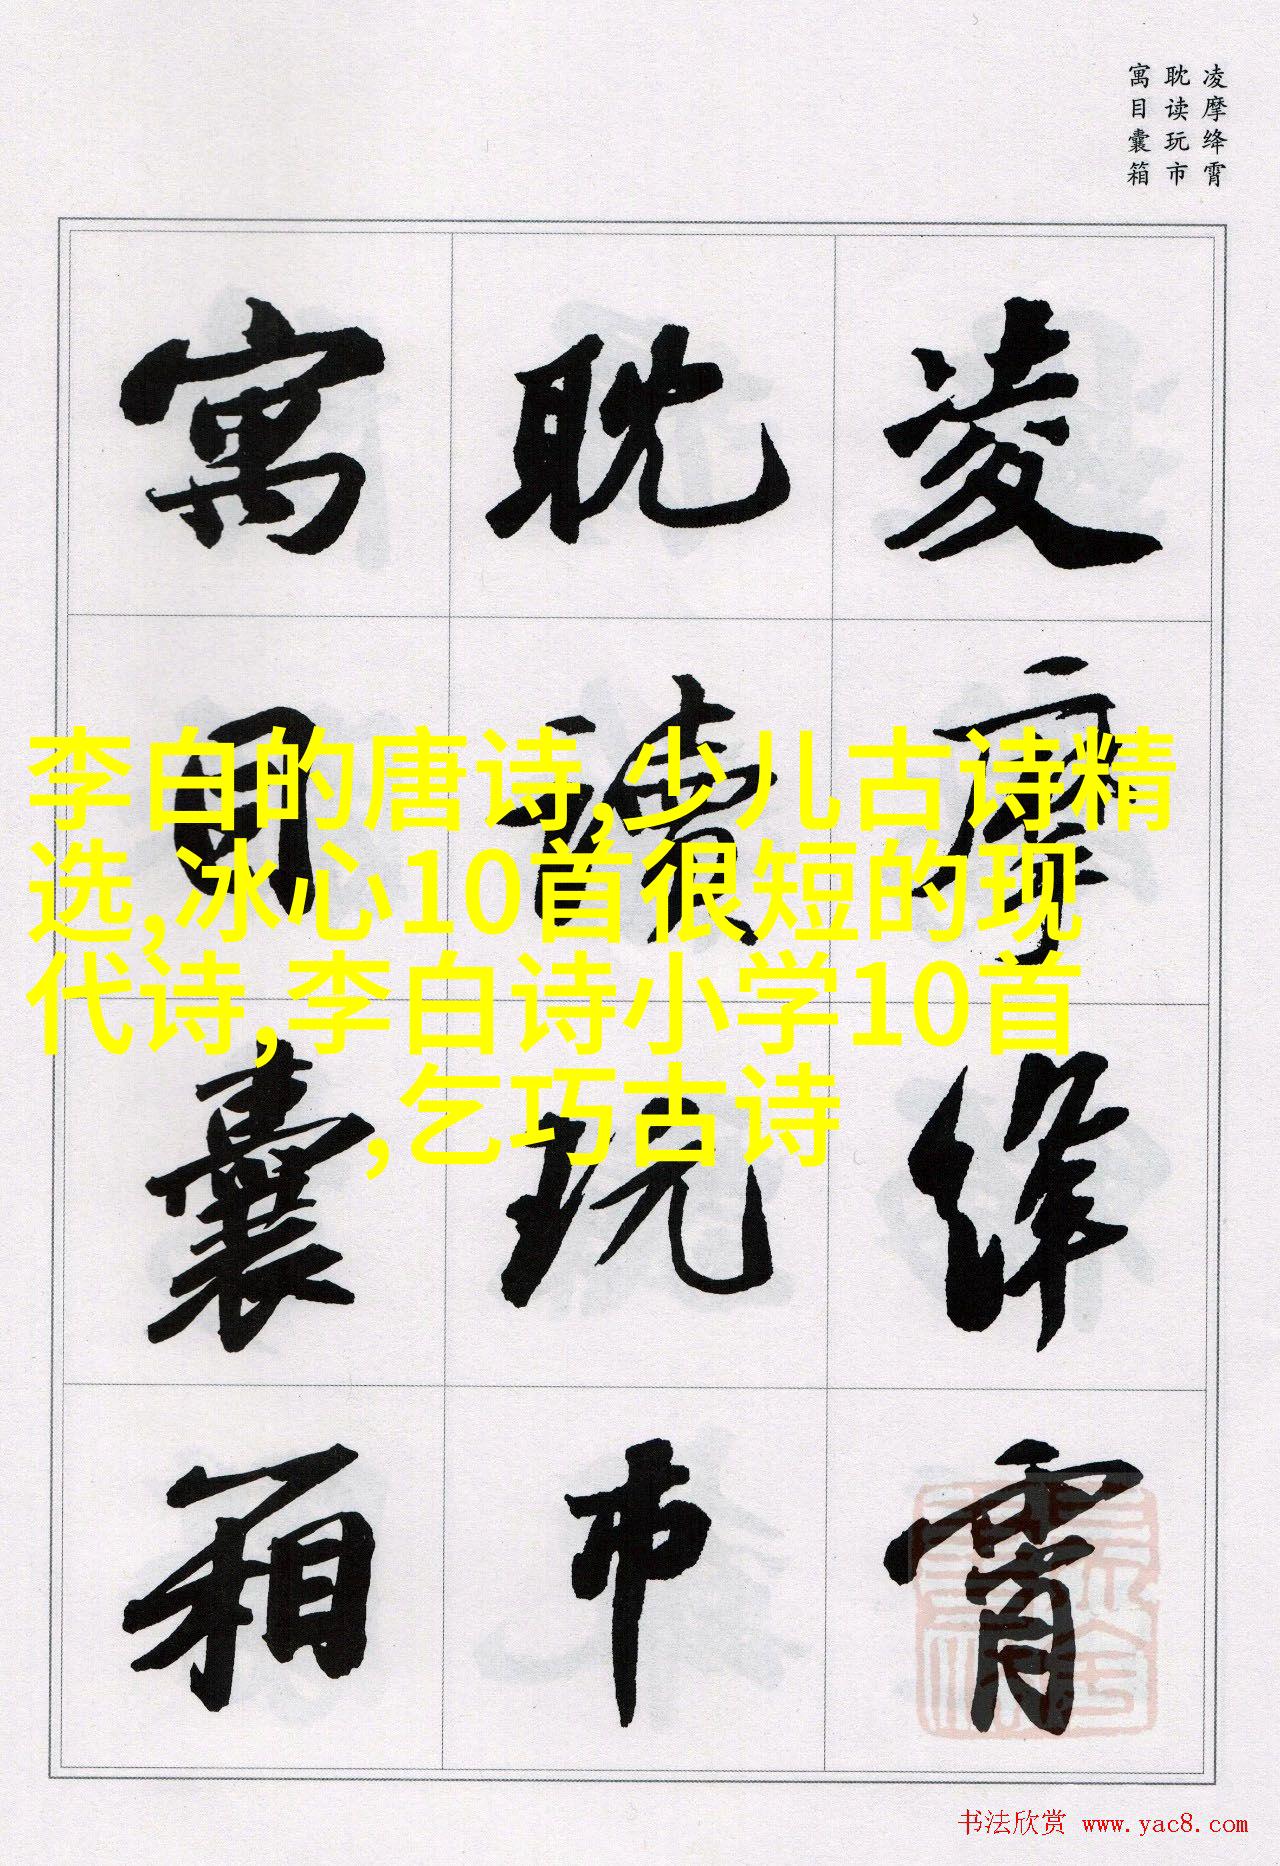 凌摩绛霄
耽读玩市
寓目囊箱
凌摩絳霄
耽讀玩市
寓目囊箱
李白的唐诗,少儿古诗精
选,冰心10首很短的现
代诗,李白诗小学10首
,乞巧古诗
书法欣赏 www.yac8.com